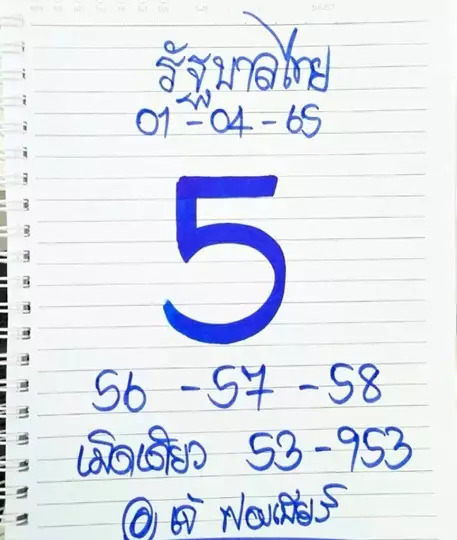 รัฐบาลไทย
01-04-65
5
56 - 57 - 58
เม็ดเดียว 53 - 953
@ เจ๊ ฟองเบียร์